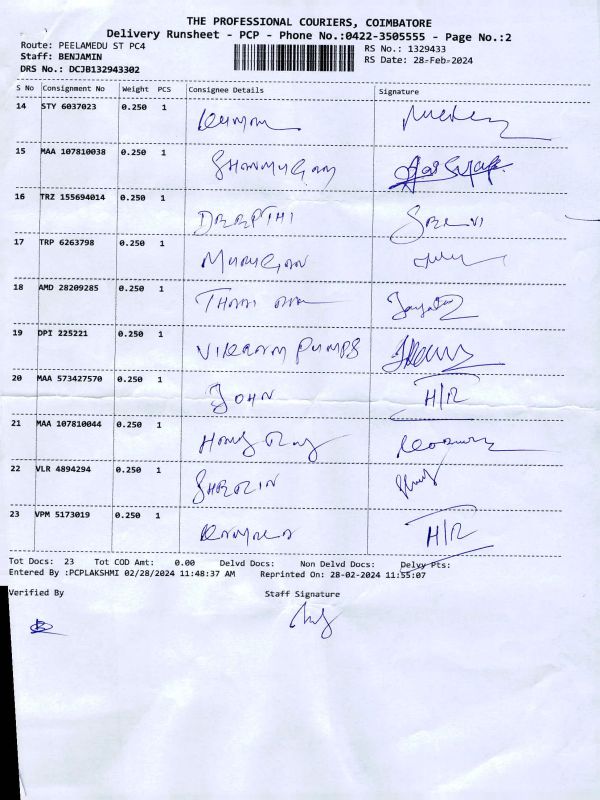 THE PROFESSIONAL COURIERS, COIMBATORE
Delivery Runsheet - PCP - Phone No.:0422-3505555 - Page No.:2
Route: PEELAMEDU ST PC4
RS No.: 1329433
Staff: BENJAMIN
RS Date: 28-Feb-2024
DRS No.: DCJB132943302
S No Consignment No Weight PCS Consignee Details Signature
14 STY 6037023 0.250 1
15 MAA 107810038 0.250 1 SHANMUGAM
16 TRZ 155694014 0.250 1 DEEPTHI
17 TRP 6263798 0.250 1 MURUGAN
18 AMD 28209285 0.250 1
19 DPI 225221 0.250 1 VIKRAM PUMPS
20 MAA 573427570 0.250 1 JOHN H/R
21 MAA 107810044 0.250 1
22 VLR 4894294 0.250 1
23 VPM 5173019 0.250 1 H/R
Tot Docs: 23 Tot COD Amt: 0.00 Delvd Docs: Non Delvd Docs: Delvy Pts:
Entered By :PCPLAKSHMI 02/28/2024 11:48:37 AM Reprinted On: 28-02-2024 11:55:07
Verified By Staff Signature